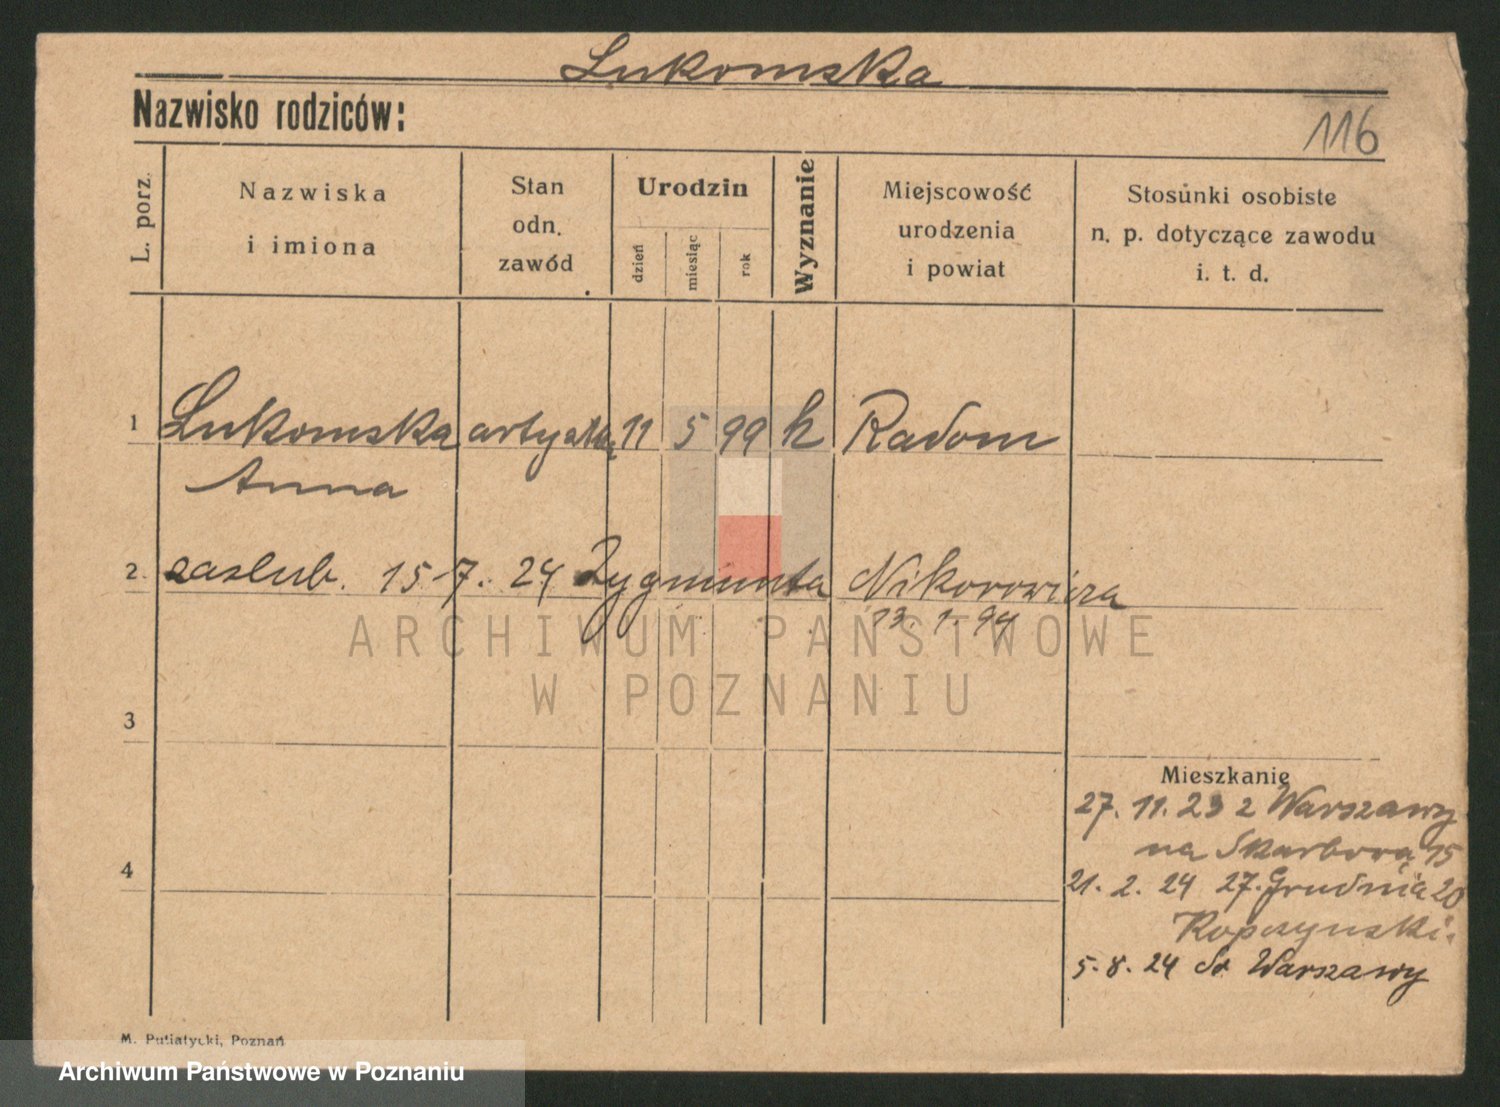 Łukomska
Nazwisko rodziców:
116
L. porz.
Nazwiska
i imiona
Stan
odn.
zawód
Urodzin
dzień
miesiąc
rok
Wyznanie
Miejscowość
urodzenia
i powiat
Stosunki osobiste
n. p. dotyczące zawodu
i. t. d.
1 Łukomska artystka 11 5 99 k Radom
Anna
2. zaślub. 15 7. 24 Zygmunta Nikorowicza
13. 1. 94
ARCHIWUM PAŃSTWOWE
W POZNANIU
3
Mieszkanie
27. 11. 23 z Warszawy
na Skarbową 15
21. 2. 24 27. Grudnia 20
Ropczyński.
4
5. 8. 24 do Warszawy
M. Putiatycki, Poznań
Archiwum Państwowe w Poznaniu